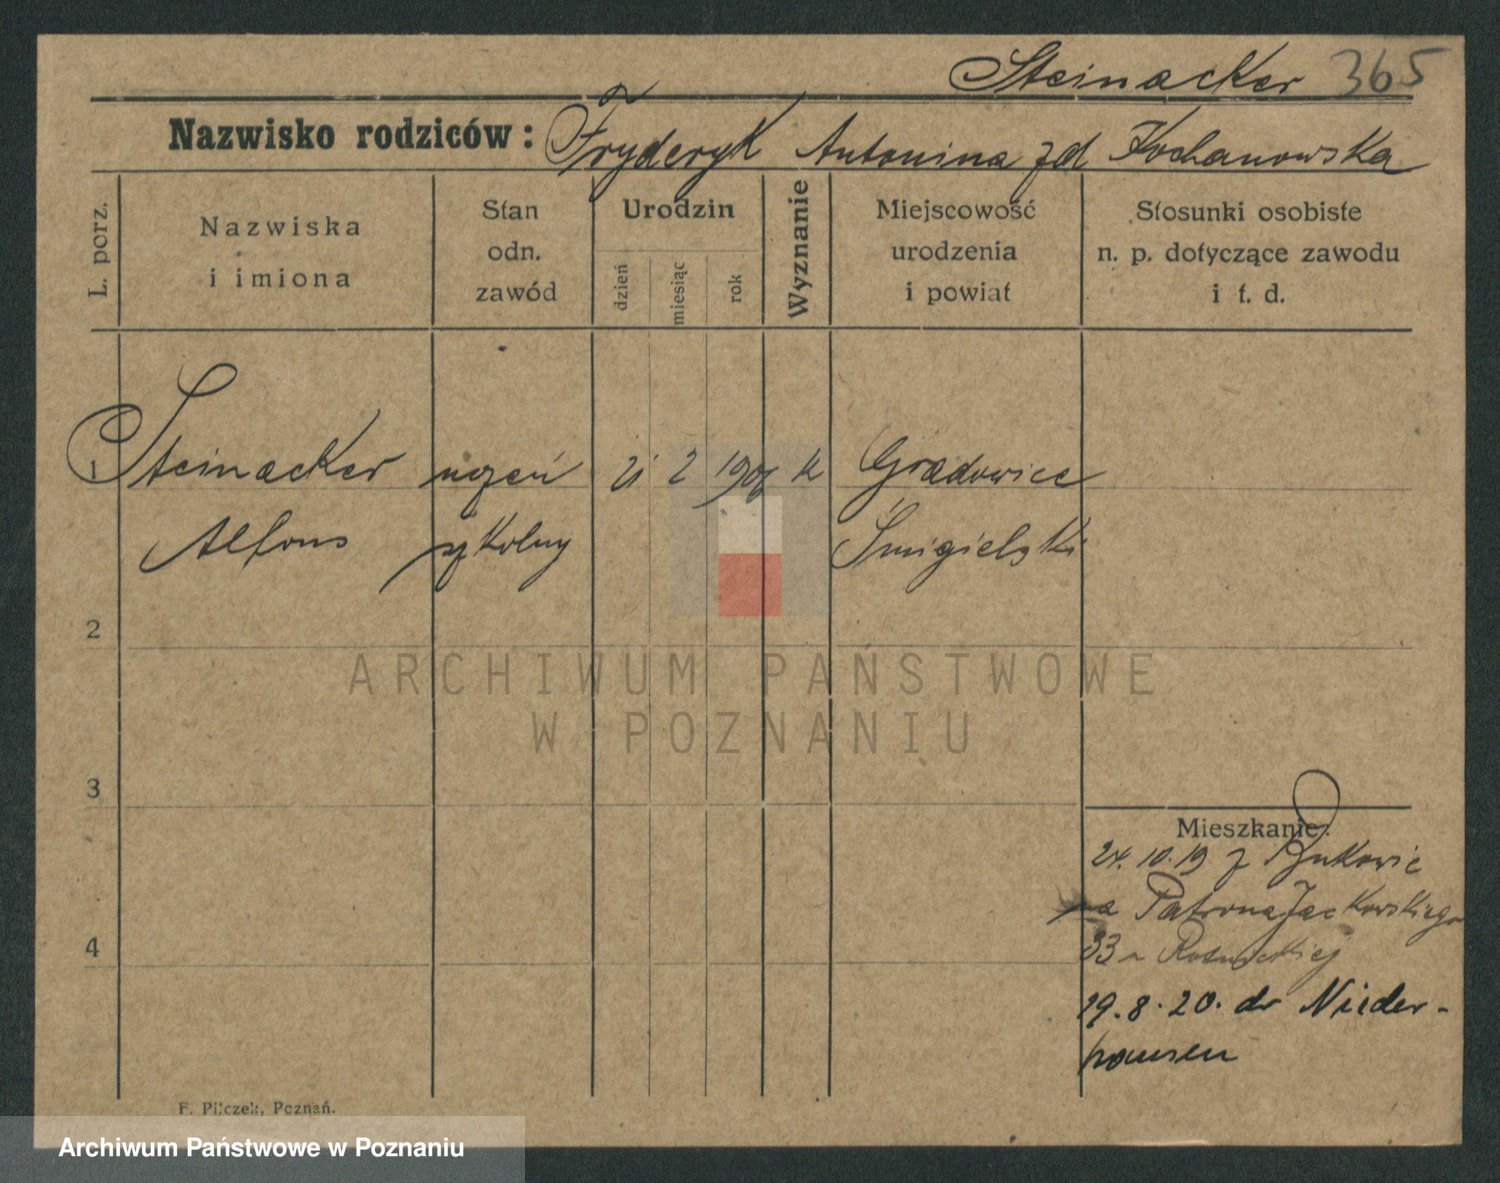 Steinacker 365
Nazwisko rodziców: Fryderyk Antonina zd Kochanowska
L. porz.
Nazwiska
i imiona
Stan
odn.
zawód
Urodzin
dzień
miesiąc
rok
Wyznanie
Miejscowość
urodzenia
i powiat
Stosunki osobiste
n. p. dotyczące zawodu
i t. d.
1 Steinacker uczeń 21 2 190 k Gradowice
Alfons szkolny Śmigielski
2
ARCHIWUM PAŃSTWOWE
W POZNANIU
3
Mieszkanie:
24. 10. 19 z
na Patrona Jackowskiego
4
33
19. 8. 20. do Nieder-
hausen
F. Pilczek, Poznań.
Archiwum Państwowe w Poznaniu